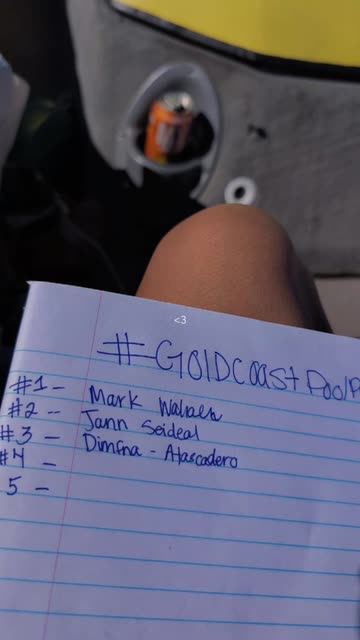 <3
#GOldcoastPoolP
#1 - Mark
#2 -- Jann Seideal
#3 - Dimfna - Atascadero
#4 -
5 -